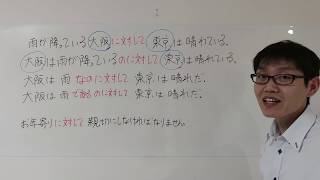 雨が降っている大阪に対して東京は晴れている。
大阪は雨が降っているのに対して東京は晴れている。
大阪は雨なのに対して東京は晴れた。
大阪は雨であるのに対して東京は晴れた。
お年寄りに対して親切にしなければなりません。